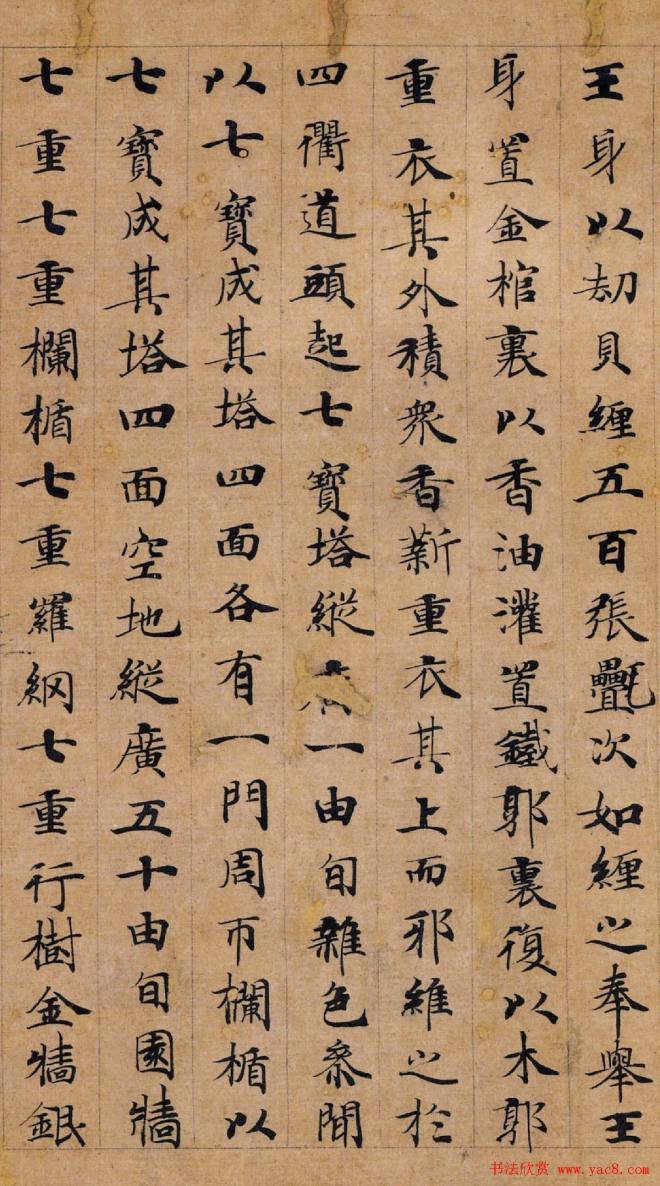 王身以劫貝纏五百張疊次如纏之奉舉王
身置金棺裏以香油灌置鐵郭裏復以木郭
重衣其外積衆香薪重衣其上而邪維之於
四衢道頭起七寶塔縱一由旬雜色參間
以七寶成其塔四面各有一門周帀欄楯以
七寶成其塔四面空地縱廣五十由旬園牆
七重七重欄楯七重羅網七重行樹金牆銀
书法欣赏 www.yac8.com